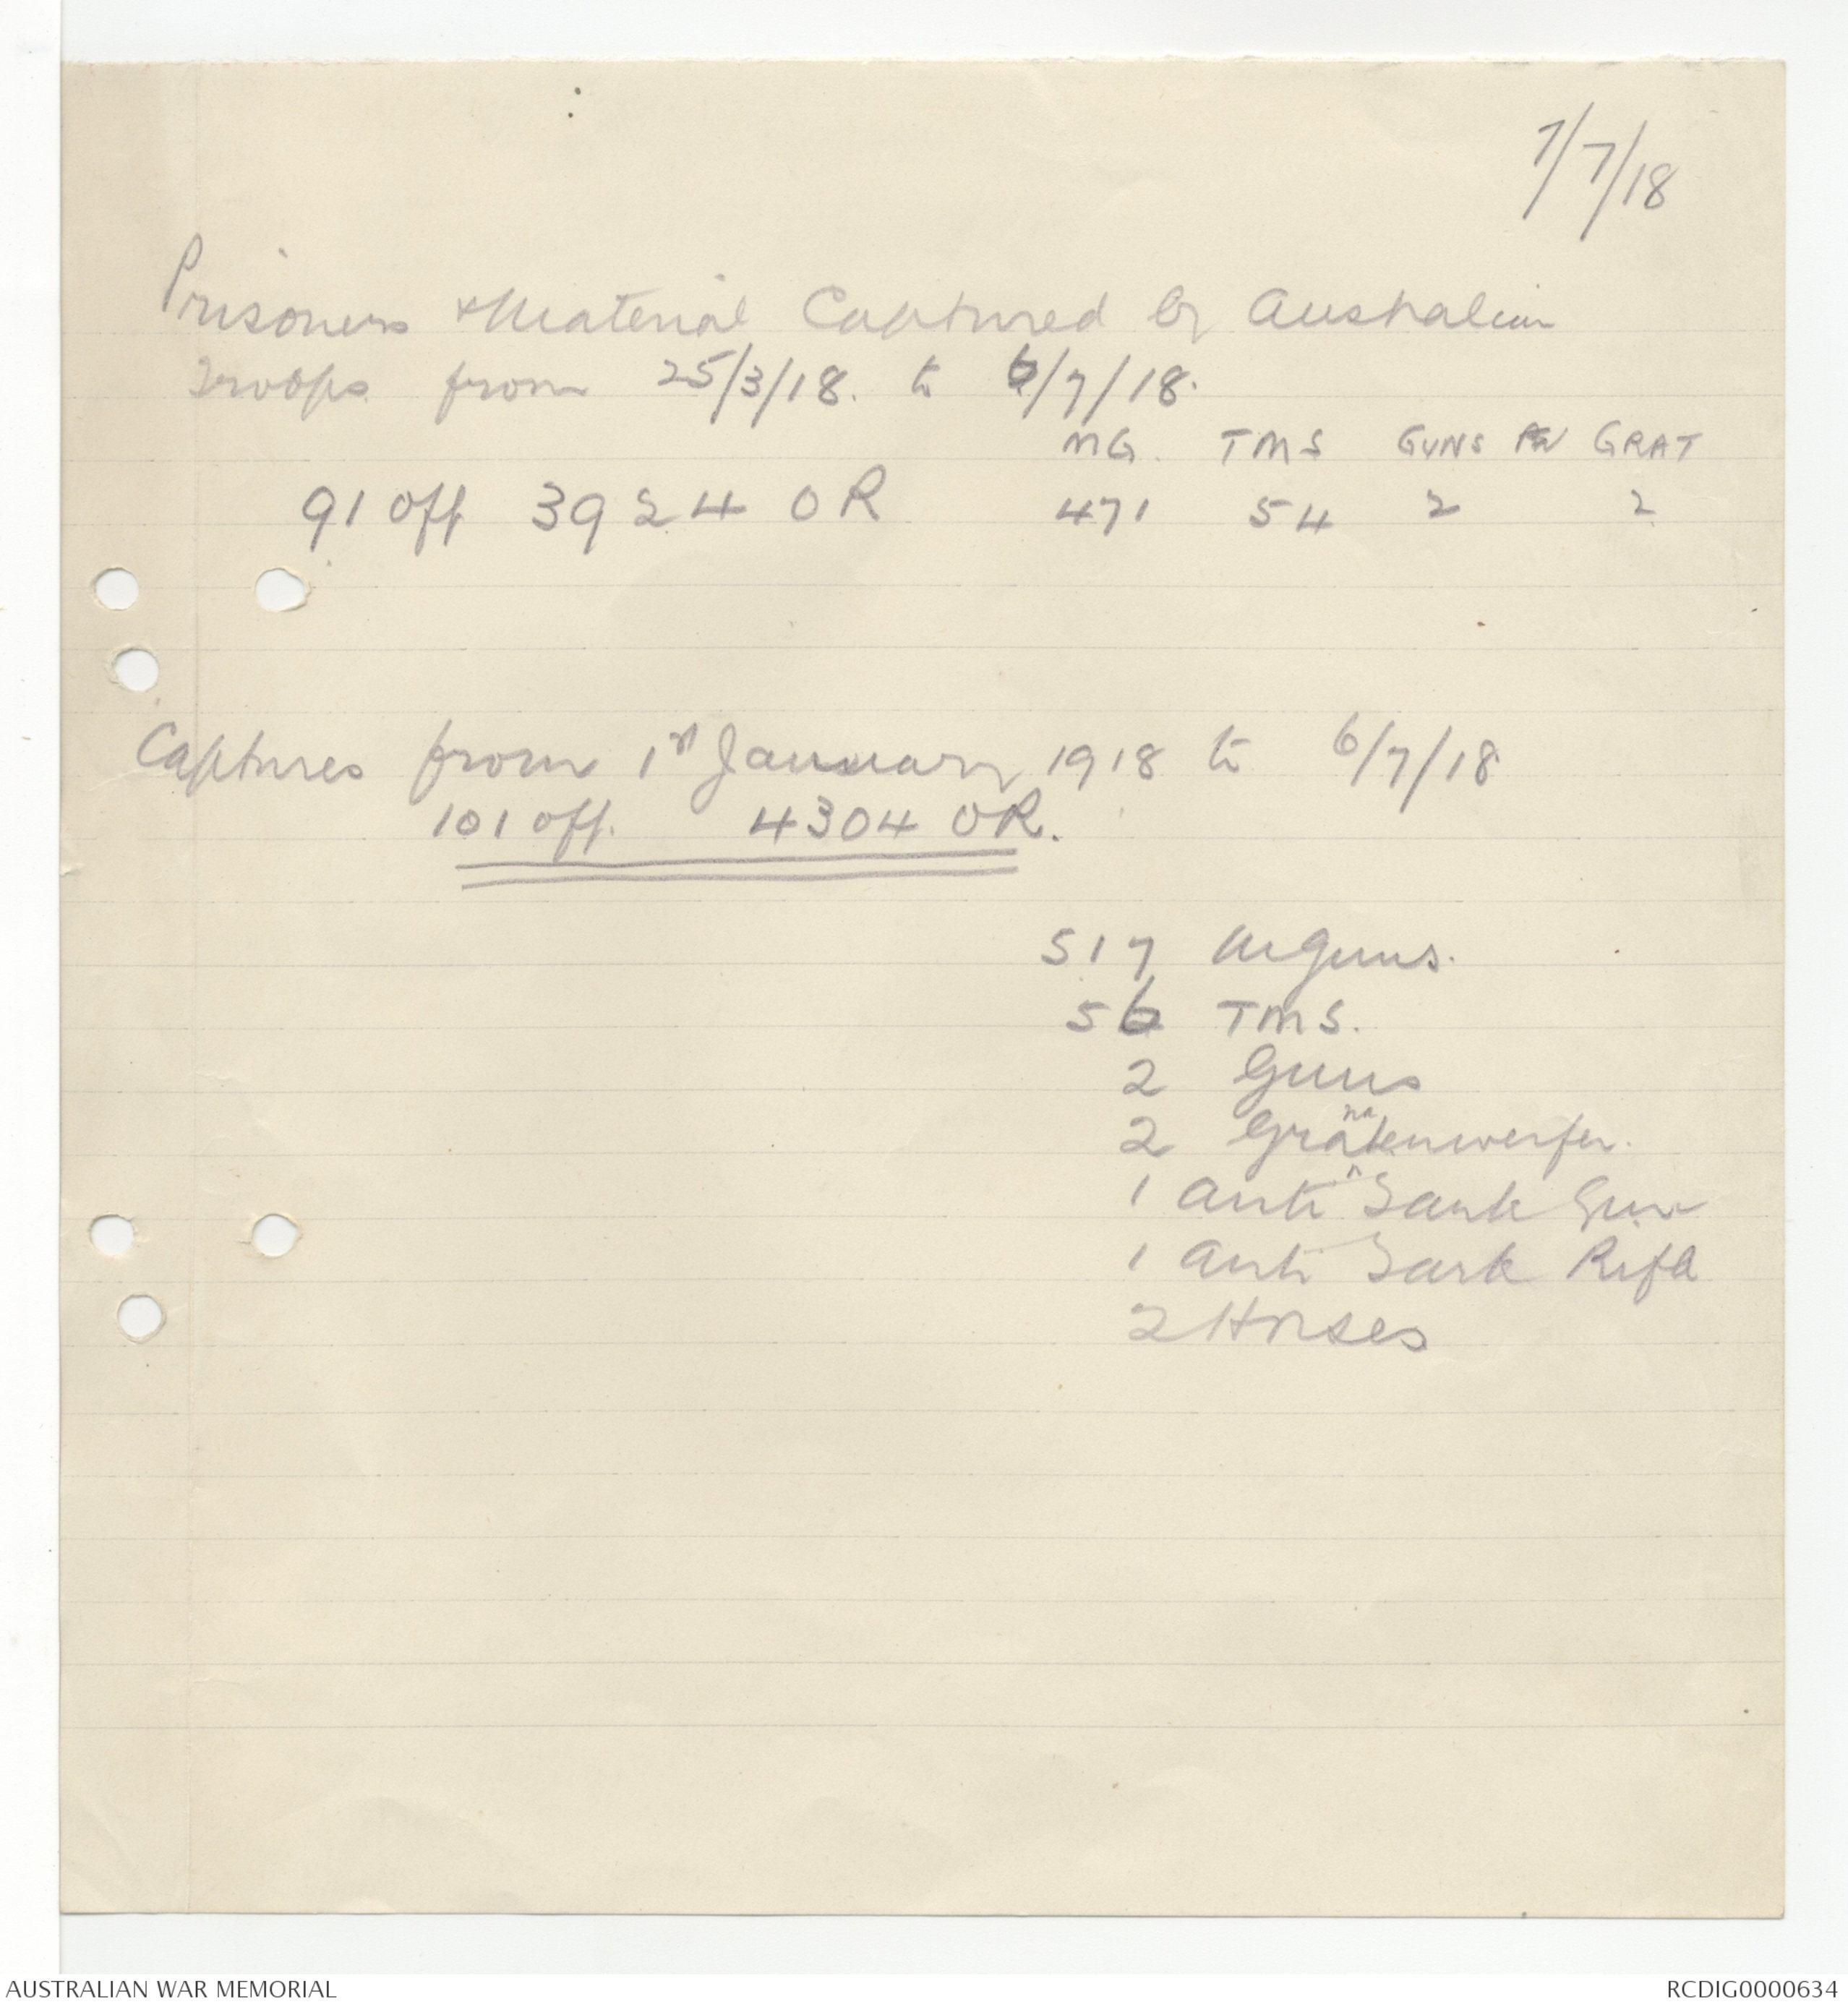 7/7/18
Prisoners & Material Captured by Australian
Troops from 25/3/18. to 6/7/18.
MG. TMS GUNS GRAT
91 Off 3924 OR 471 54 2 2
Captures from 1st January 1918 to 6/7/18
101 Off. 4304 OR.
517 M Guns.
56 TMS.
2 Guns
2 Granatenwerfer.
1 Anti Tank Gun
1 Anti Tank Rifle
2 Horses
AUSTRALIAN WAR MEMORIAL RCDIG0000634